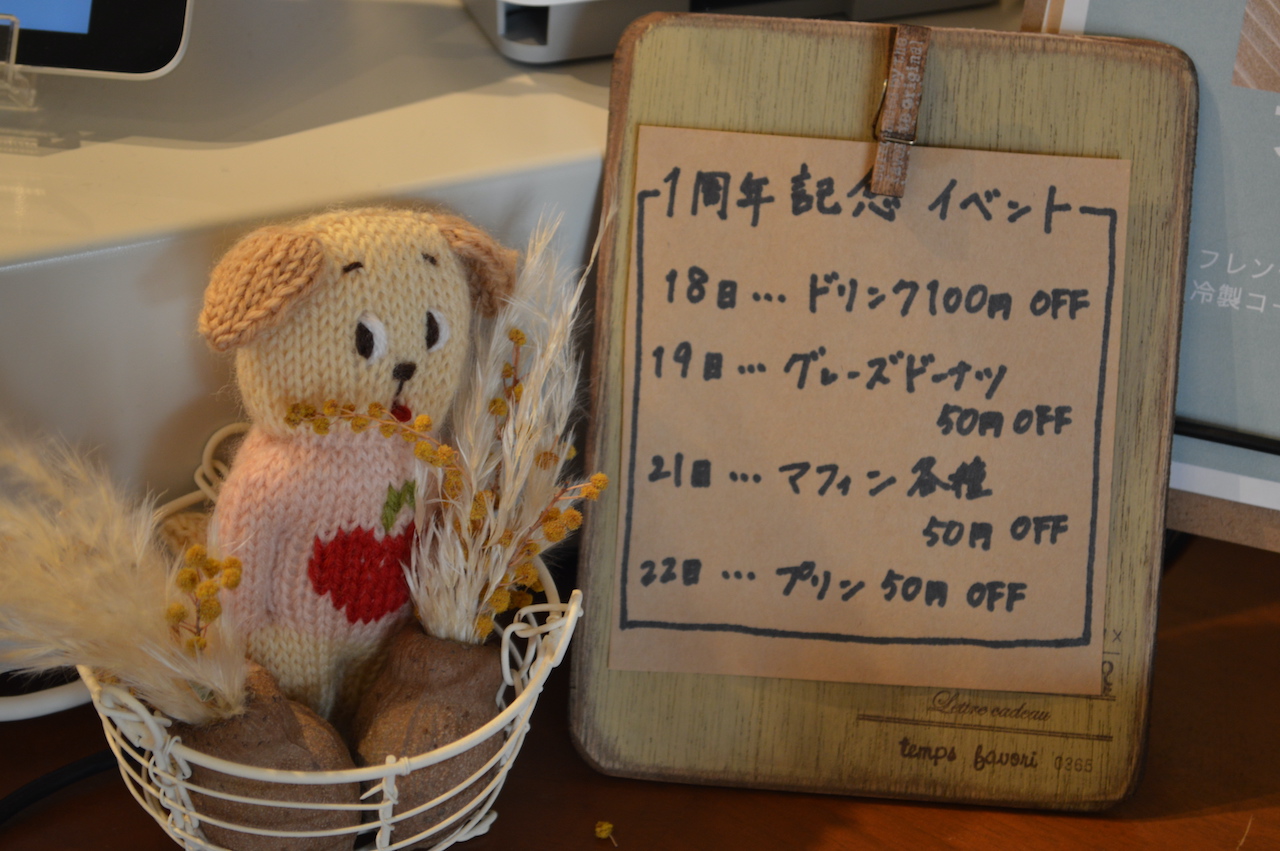 1周年記念 イベント
18日… ドリンク100円 OFF
19日… グレーズドーナツ
50円 OFF
21日… マフィン各種
50円 OFF
22日… プリン 50円 OFF
Lettre cadeau
temps favori 0365
フレン
冷製コー